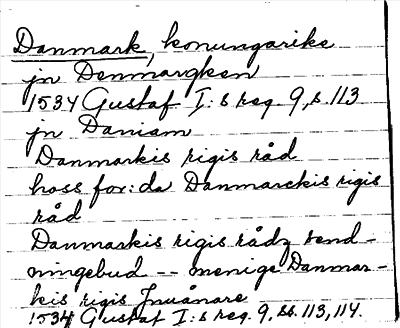 Danmark, konungarike
jn Denmargken
1534 Gustaf I:s reg 9, s. 113
jn Daniam
Danmarkis rigis råd
hoss for:da Danmarckis rigis
råd
Danmarkis rigis rådz send-
ningebud -- menige Danmar-
kis rigis Jnuånare
1534 Gustaf I:s reg. 9, ss. 113, 114.